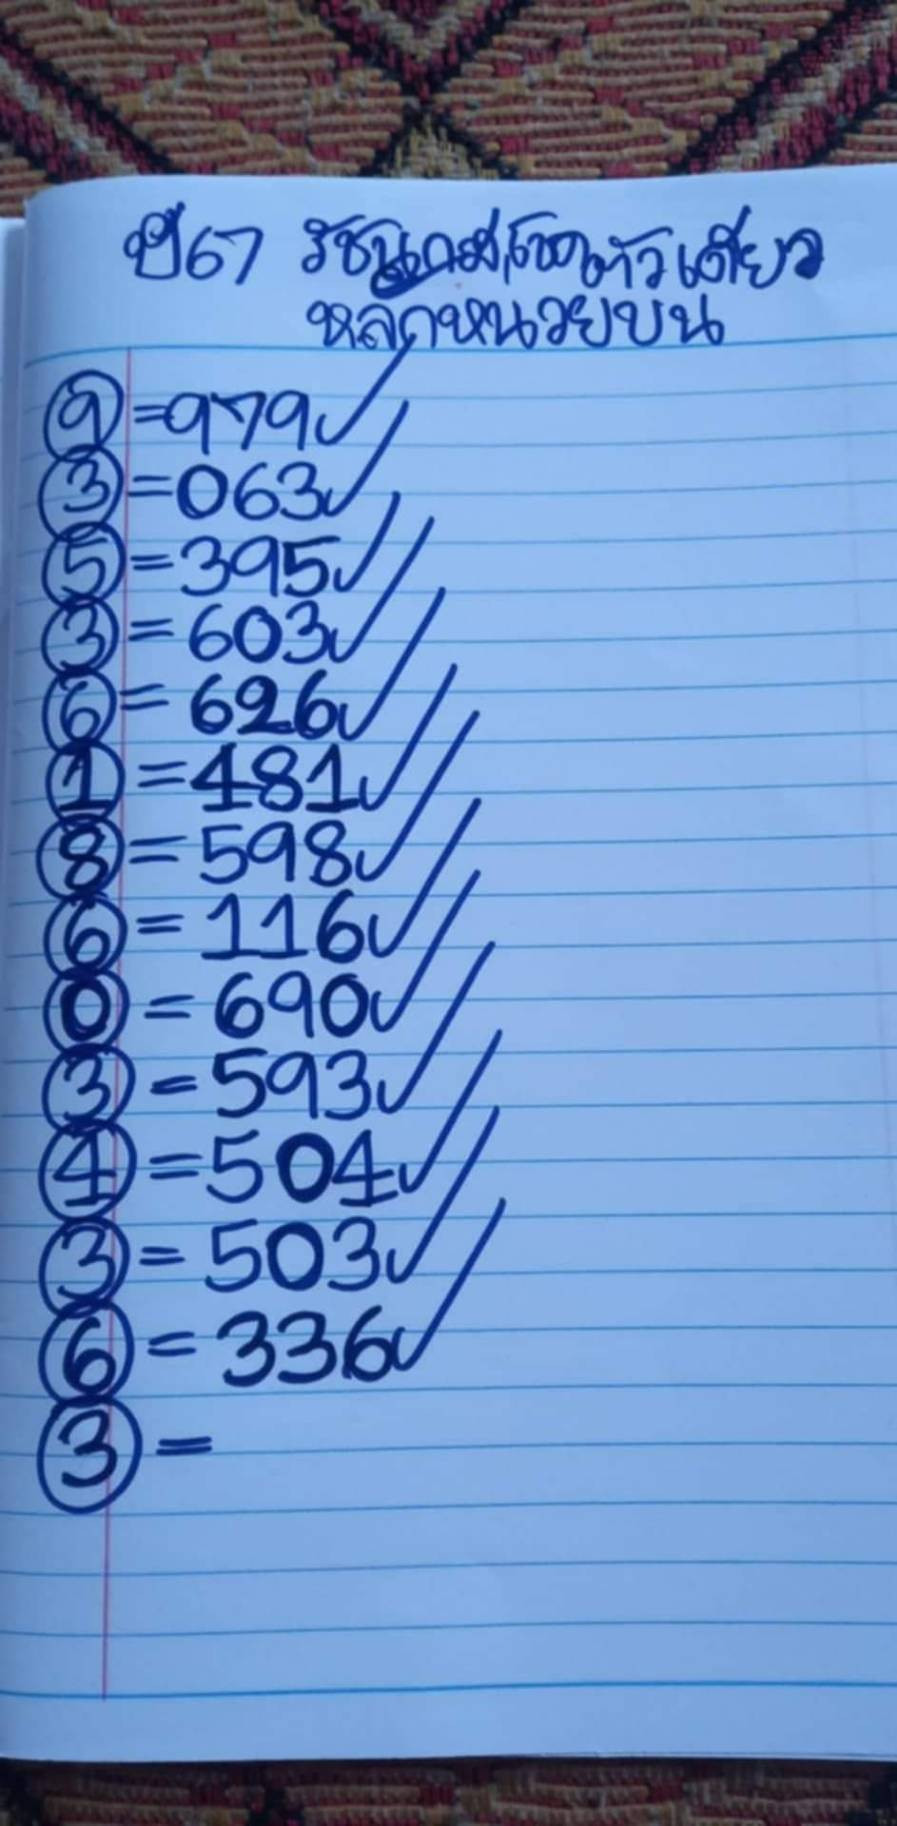 ปี67 รัชนีเกมส์,โชคตัวเดียว
หลักหน่วยบน
9 = 979 ✓
3 = 063 ✓
5 = 395 ✓
3 = 603 ✓
6 = 626 ✓
1 = 481 ✓
8 = 598 ✓
6 = 116 ✓
0 = 690 ✓
3 = 593 ✓
4 = 504 ✓
3 = 503 ✓
6 = 336 ✓
3 =